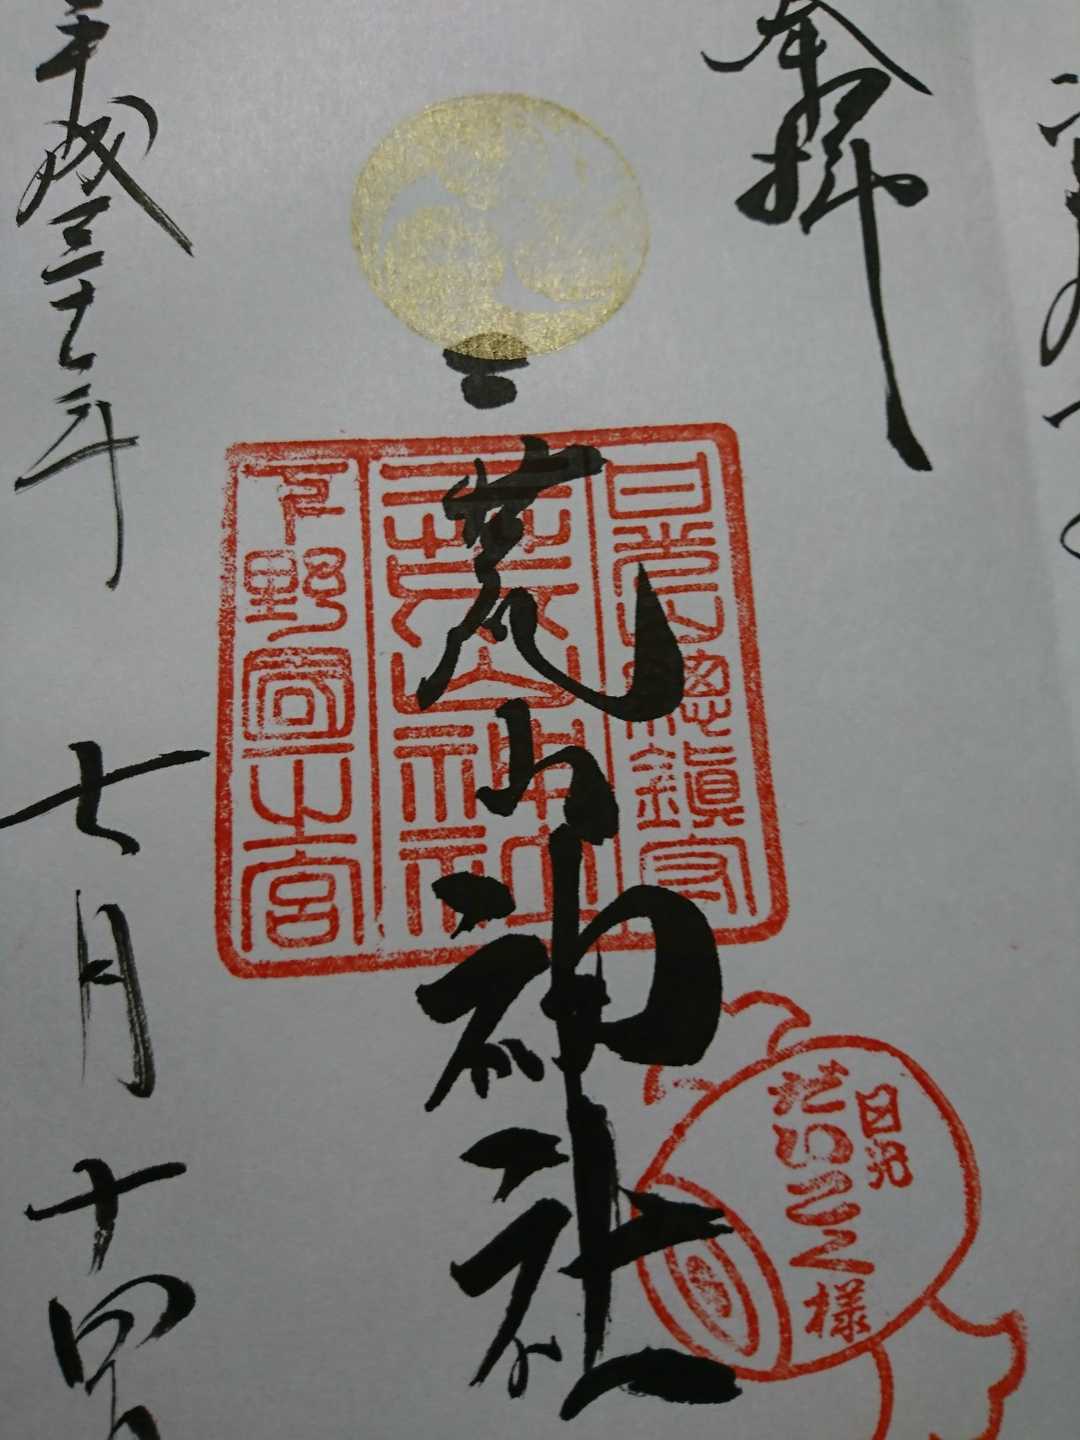 奉拝
二荒山神社
平成 年 七月十四日
日光山総鎮守
二荒山神社
下野國一之宮
日光
だいこく様